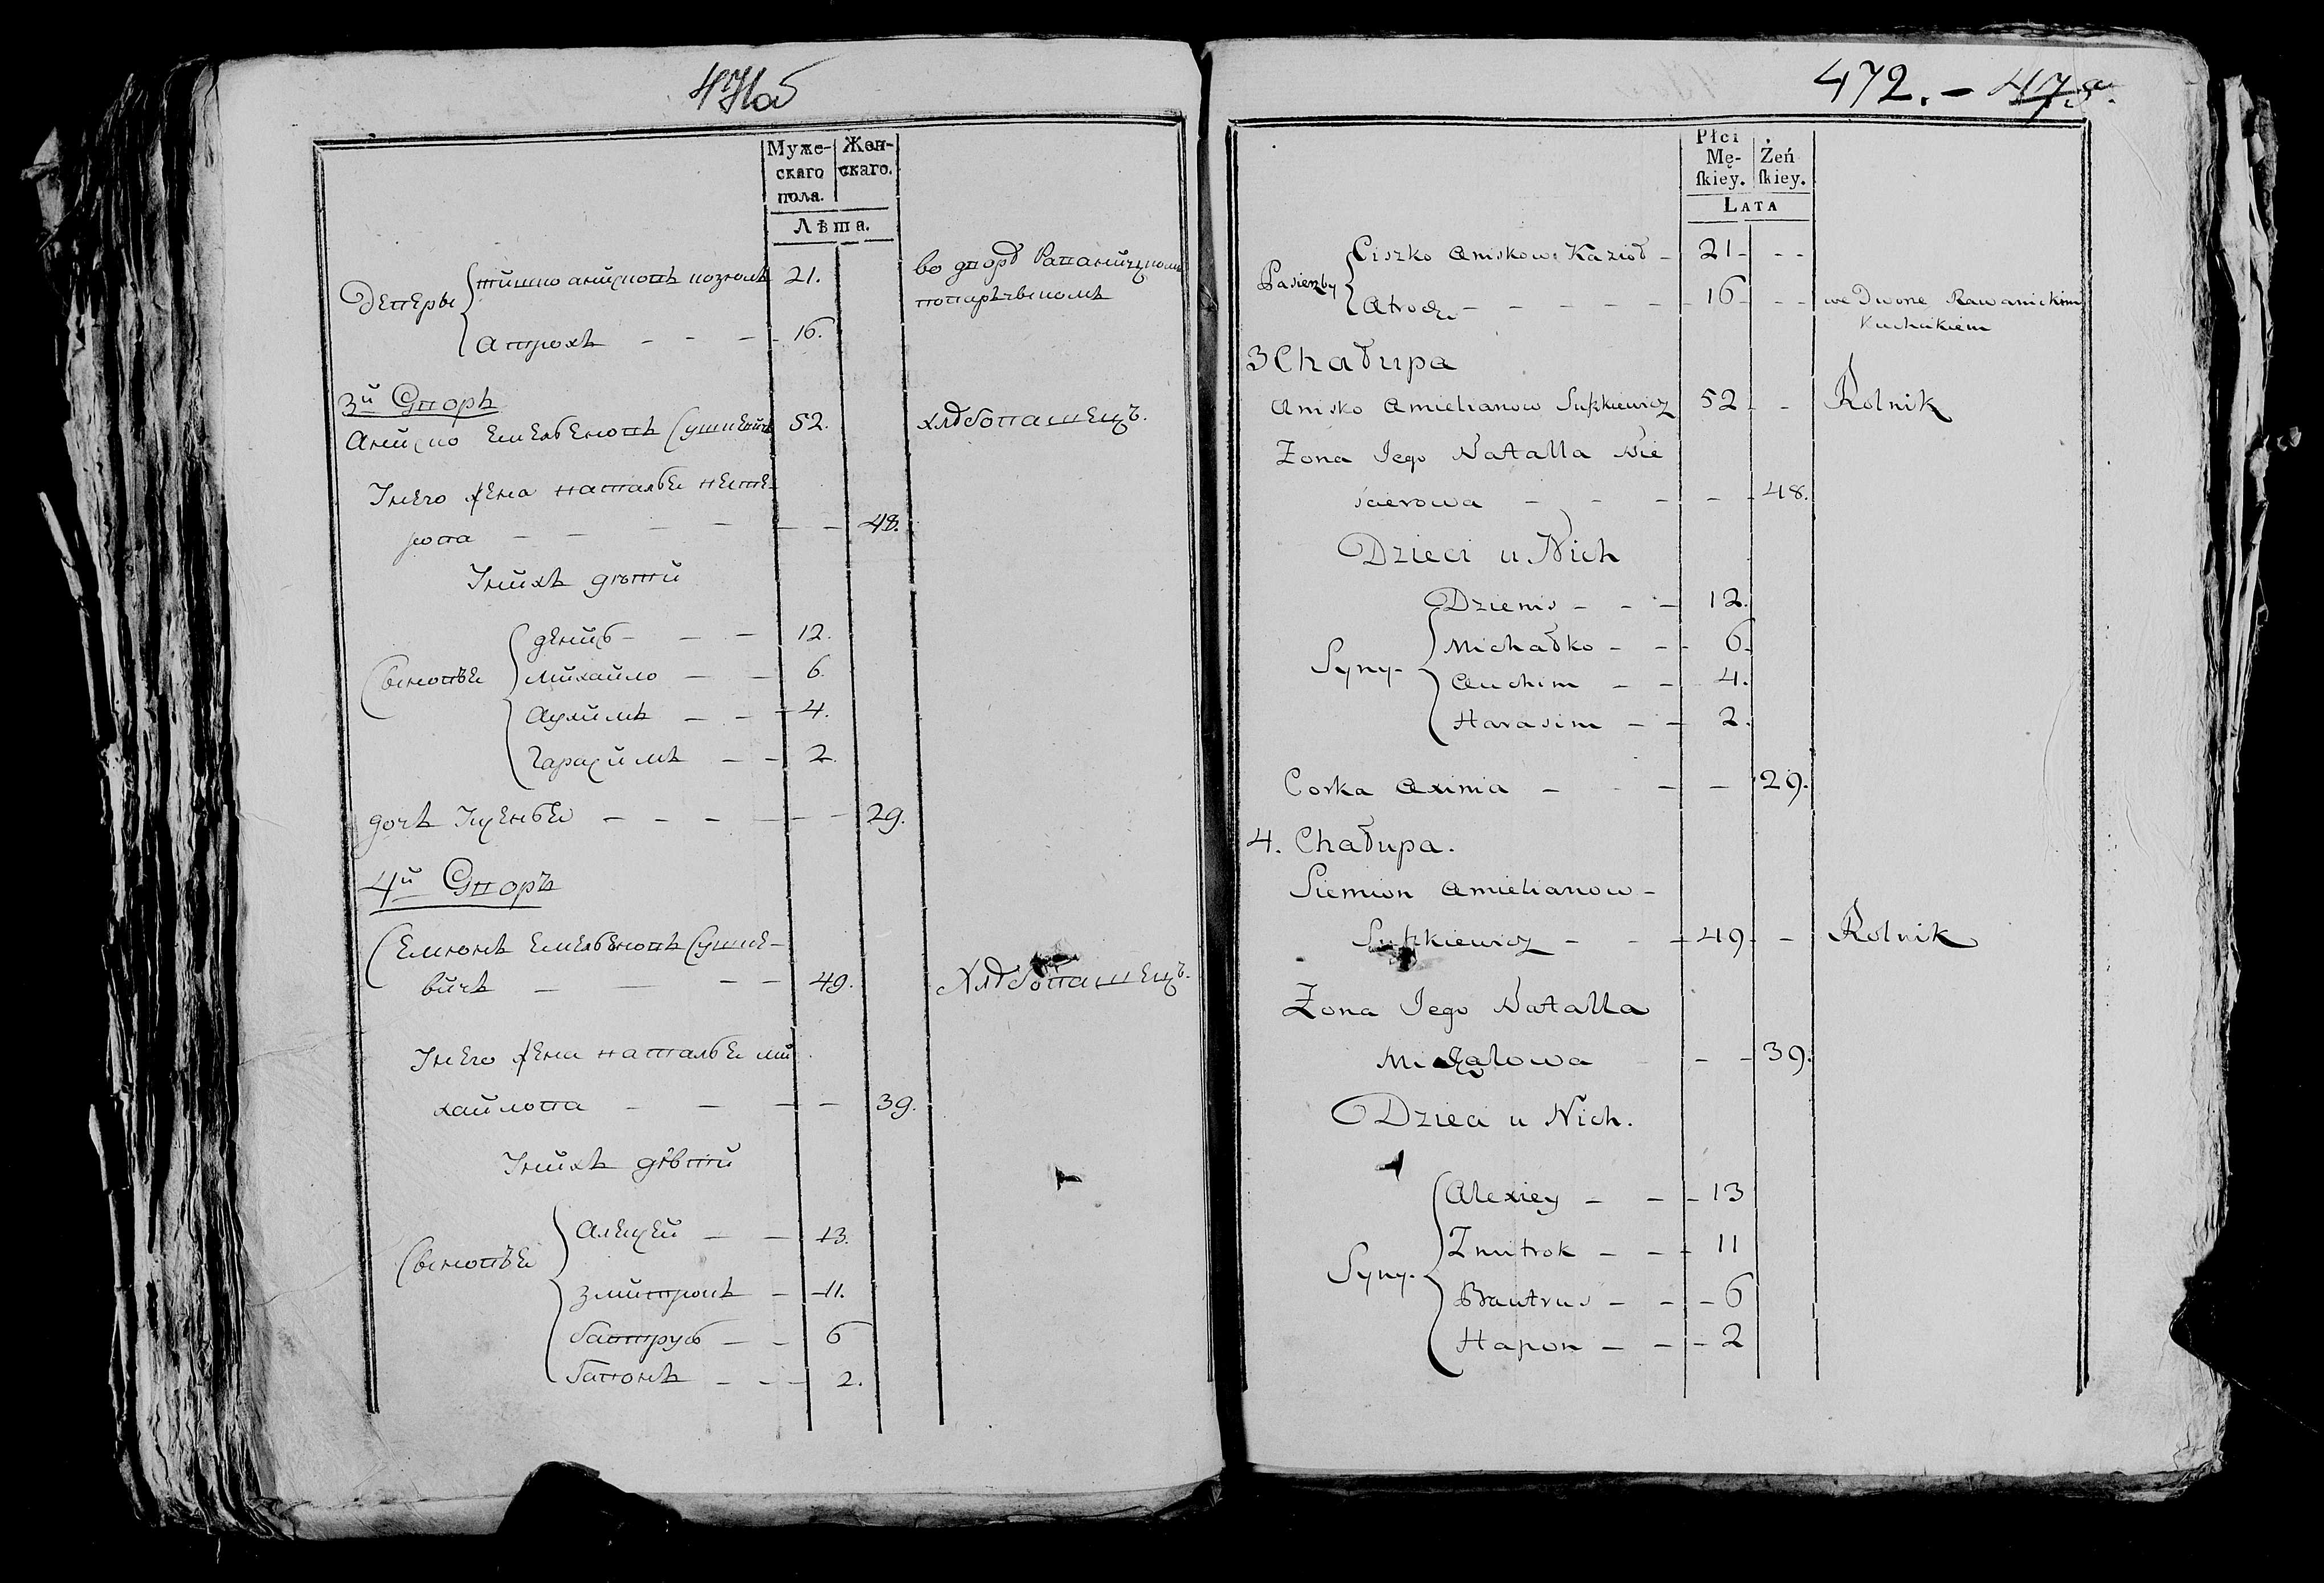 471об
Муже-
скаго
пола.
Жен-
скаго.
Лѣта.
Тишко Анисковъ Козюлъ 21.
во дворѣ Раваницкомъ
поваръчикомъ
Атрохъ - - - 16.
3й Дворъ
Аниско Емельяновъ Сушкевичъ 52.
хлѣбопашецъ.
У него жена Наталья Несте-
рова - - - - - 48.
У нихъ дѣти
Сыновья
Денисъ - - - 12.
Михайло - - 6.
Аухимъ - - - 4.
Гарасимъ - - 2.
дочь - - - - - 29.
4й Дворъ
Семіонъ Емельяновъ Сушке-
вичъ - - - - 49.
Хлѣбопашецъ.
У него жена Наталья Ми
хайлова - - - - 39.
У нихъ дѣти
Сыновья
Алексей - - 13.
Змитрокъ - 11.
Баутрусъ - - 6
Гапонъ - - - 2.
472. - 473.
Płci
Mę-
ſkiey.
Żeń
ſkiey.
LATA
Pasierzby
Ciszko Aniskow Kazioł - 21 - - -
Atroch - - - - - - 16 - - - we Dworze Rawanickim
Kuchcikiem
3 Chałupa
Anisko Amielianow Suszkiewicz 52 - - Rolnik
Zona Jego Natalla Nie
ścierowa - - - - - 48.
Dzieci u Nich
Syny -
Dzienis - - - 12.
Michałko - - - 6.
Auchim - - 4.
Harasim - - 2.
Corka Axinia - - - - 29.
4. Chałupa.
Siemion Amielianow -
Suszkiewicz - - - 49. - Rolnik
Zona Jego Natalla
Michałowa - - 39.
Dzieci u Nich.
Syny -
Alexiey - - - 13
Zmitrok - - - 11
Bautrus - - - 6
Hapon - - - 2